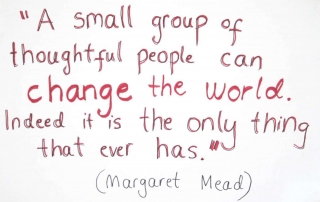 "A small group of
thoughtful people can
change the world.
Indeed it is the only thing
that ever has."
(Margaret Mead)